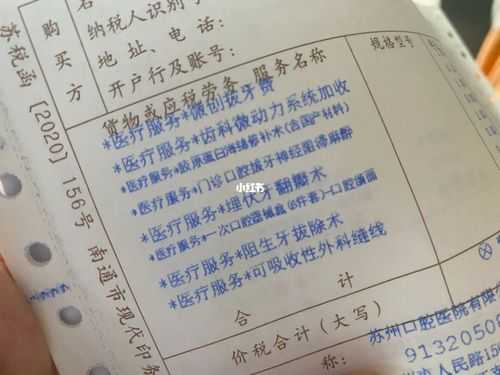 名
纳税人识别
地址、电话:
开户行及账号:
购买方
货物或应税劳务、服务名称
规格型号
*医疗服务*微创拔牙费
*医疗服务*齿科微动力系统加收
*医疗服务*胶原蛋白海绵修补术(含国产材料)
*医疗服务*门诊口腔拔牙神经阻滞麻醉
*医疗服务*埋伏牙翻瓣术
*医疗服务*一次口腔器械盘(6件套)-口腔颌面
*医疗服务*阻生牙拔除术
*医疗服务*可吸收性外科缝线
合计
价税合计(大写)
称:
苏州口腔医院有限
9132050
苏税函〔2020〕156号 南通市现代印务
小红书